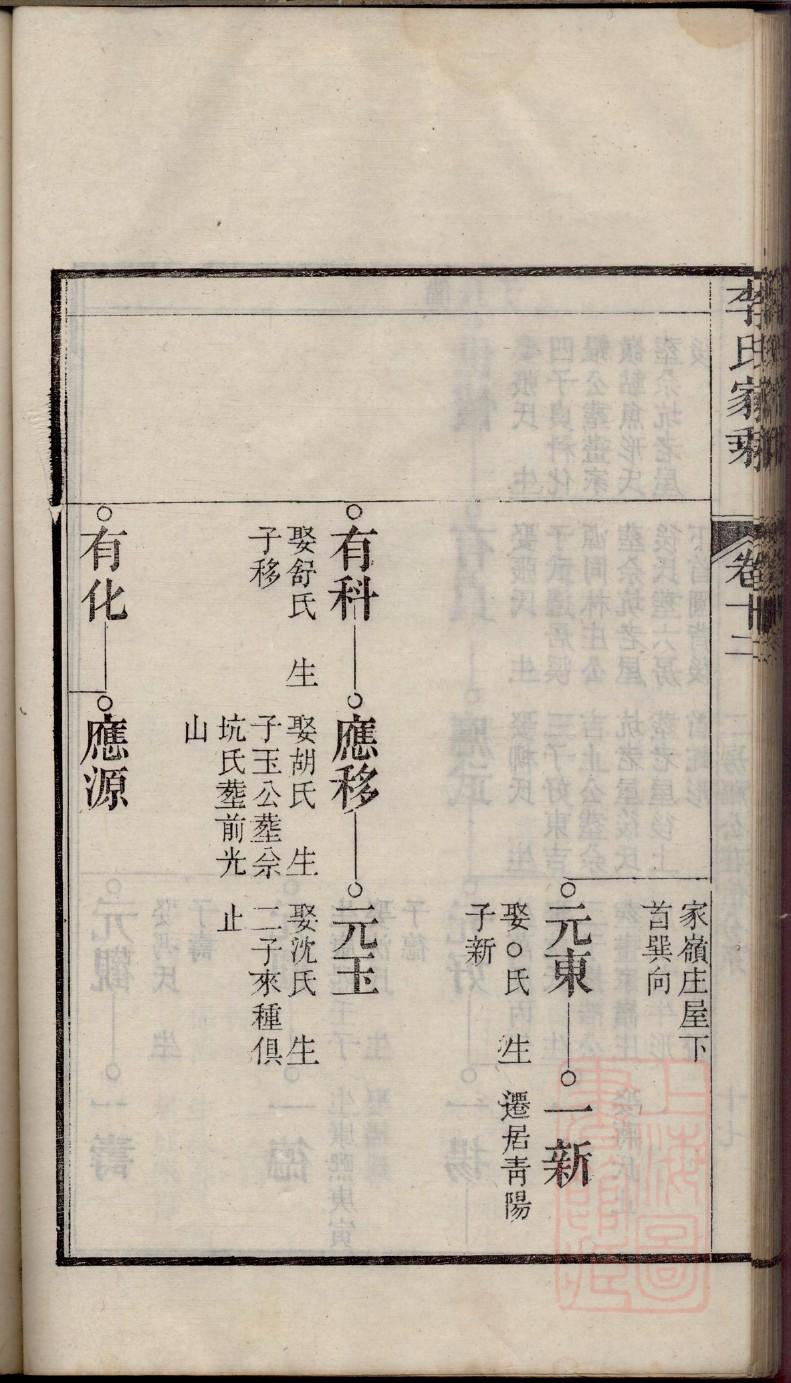 李氏家乘
卷十二
家嶺庄屋下
首巽向
元東
娶○氏 生
子新
一新
遷居靑陽
有科
娶舒氏 生
子移
應移
娶胡氏 生
子玉公塟佘
坑氏塟前光
山
元玉
娶沈氏 生
二子來種俱
止
有化
應源